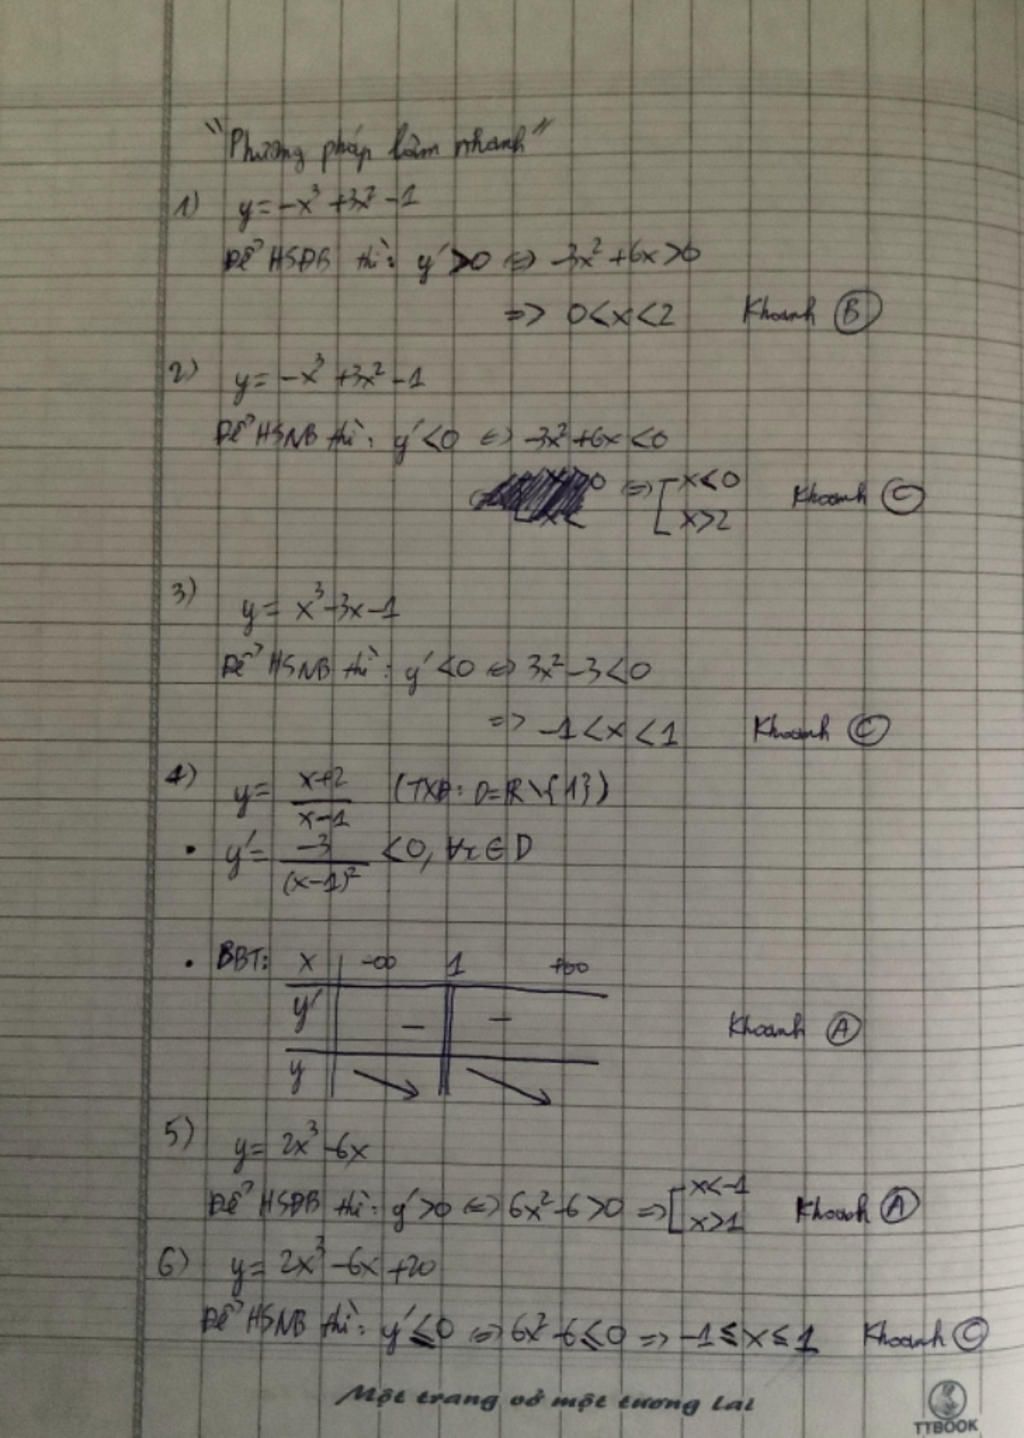 "Phương pháp làm nhanh"
1) y = -x³ + 3x² - 1
Để HSĐB thì: y' > 0 ⇔ -3x² + 6x > 0
=> 0 < x < 2 Khoanh (B)
2) y = -x³ + 3x² - 1
Để HSNB thì: y' < 0 ⇔ -3x² + 6x < 0
=> [ x < 0
x > 2 Khoanh (C)
3) y = x³ - 3x - 1
Để HSNB thì: y' < 0 ⇔ 3x² - 3 < 0
=> -1 < x < 1 Khoanh (C)
4) y = (x+2)/(x-1) (TXĐ: D = R \ {1})
• y' = -3/(x-1)² < 0, ∀x ∈ D
• BBT: x | -∞ 1 +∞
y' | - || -
Khoanh (A)
y | ↘ || ↘
5) y = 2x³ - 6x
Để HSĐB thì: y' > 0 ⇔ 6x² - 6 > 0 => [ x < -1
x > 1 Khoanh (A)
6) y = 2x³ - 6x + 20
Để HSNB thì: y' ≤ 0 ⇔ 6x² - 6 ≤ 0 => -1 ≤ x ≤ 1 Khoanh (C)
Một trang vở một tương lai
TTBOOK